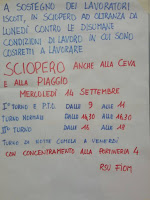 A SOSTEGNO DEI LAVORATORI
ISCOT, IN SCIOPERO AD OLTRANZA DA
LUNEDÌ CONTRO LE DISUMANE
CONDIZIONI DI LAVORO IN CUI SONO
COSTRETTI A LAVORARE
SCIOPERO ANCHE ALLA CEVA
E ALLA PIAGGIO
MERCOLEDÌ 14 SETTEMBRE
I° TURNO E P.TO. DALLE 9 ALLE 11
TURNO NORMALE DALLE 14,30 ALLE 16,30
II° TURNO DALLE 16 ALLE 18
TURNO DI NOTTE COMELA A VENERDÌ
CON CONCENTRAMENTO ALLA PORTINERIA 4
RSU FIOM